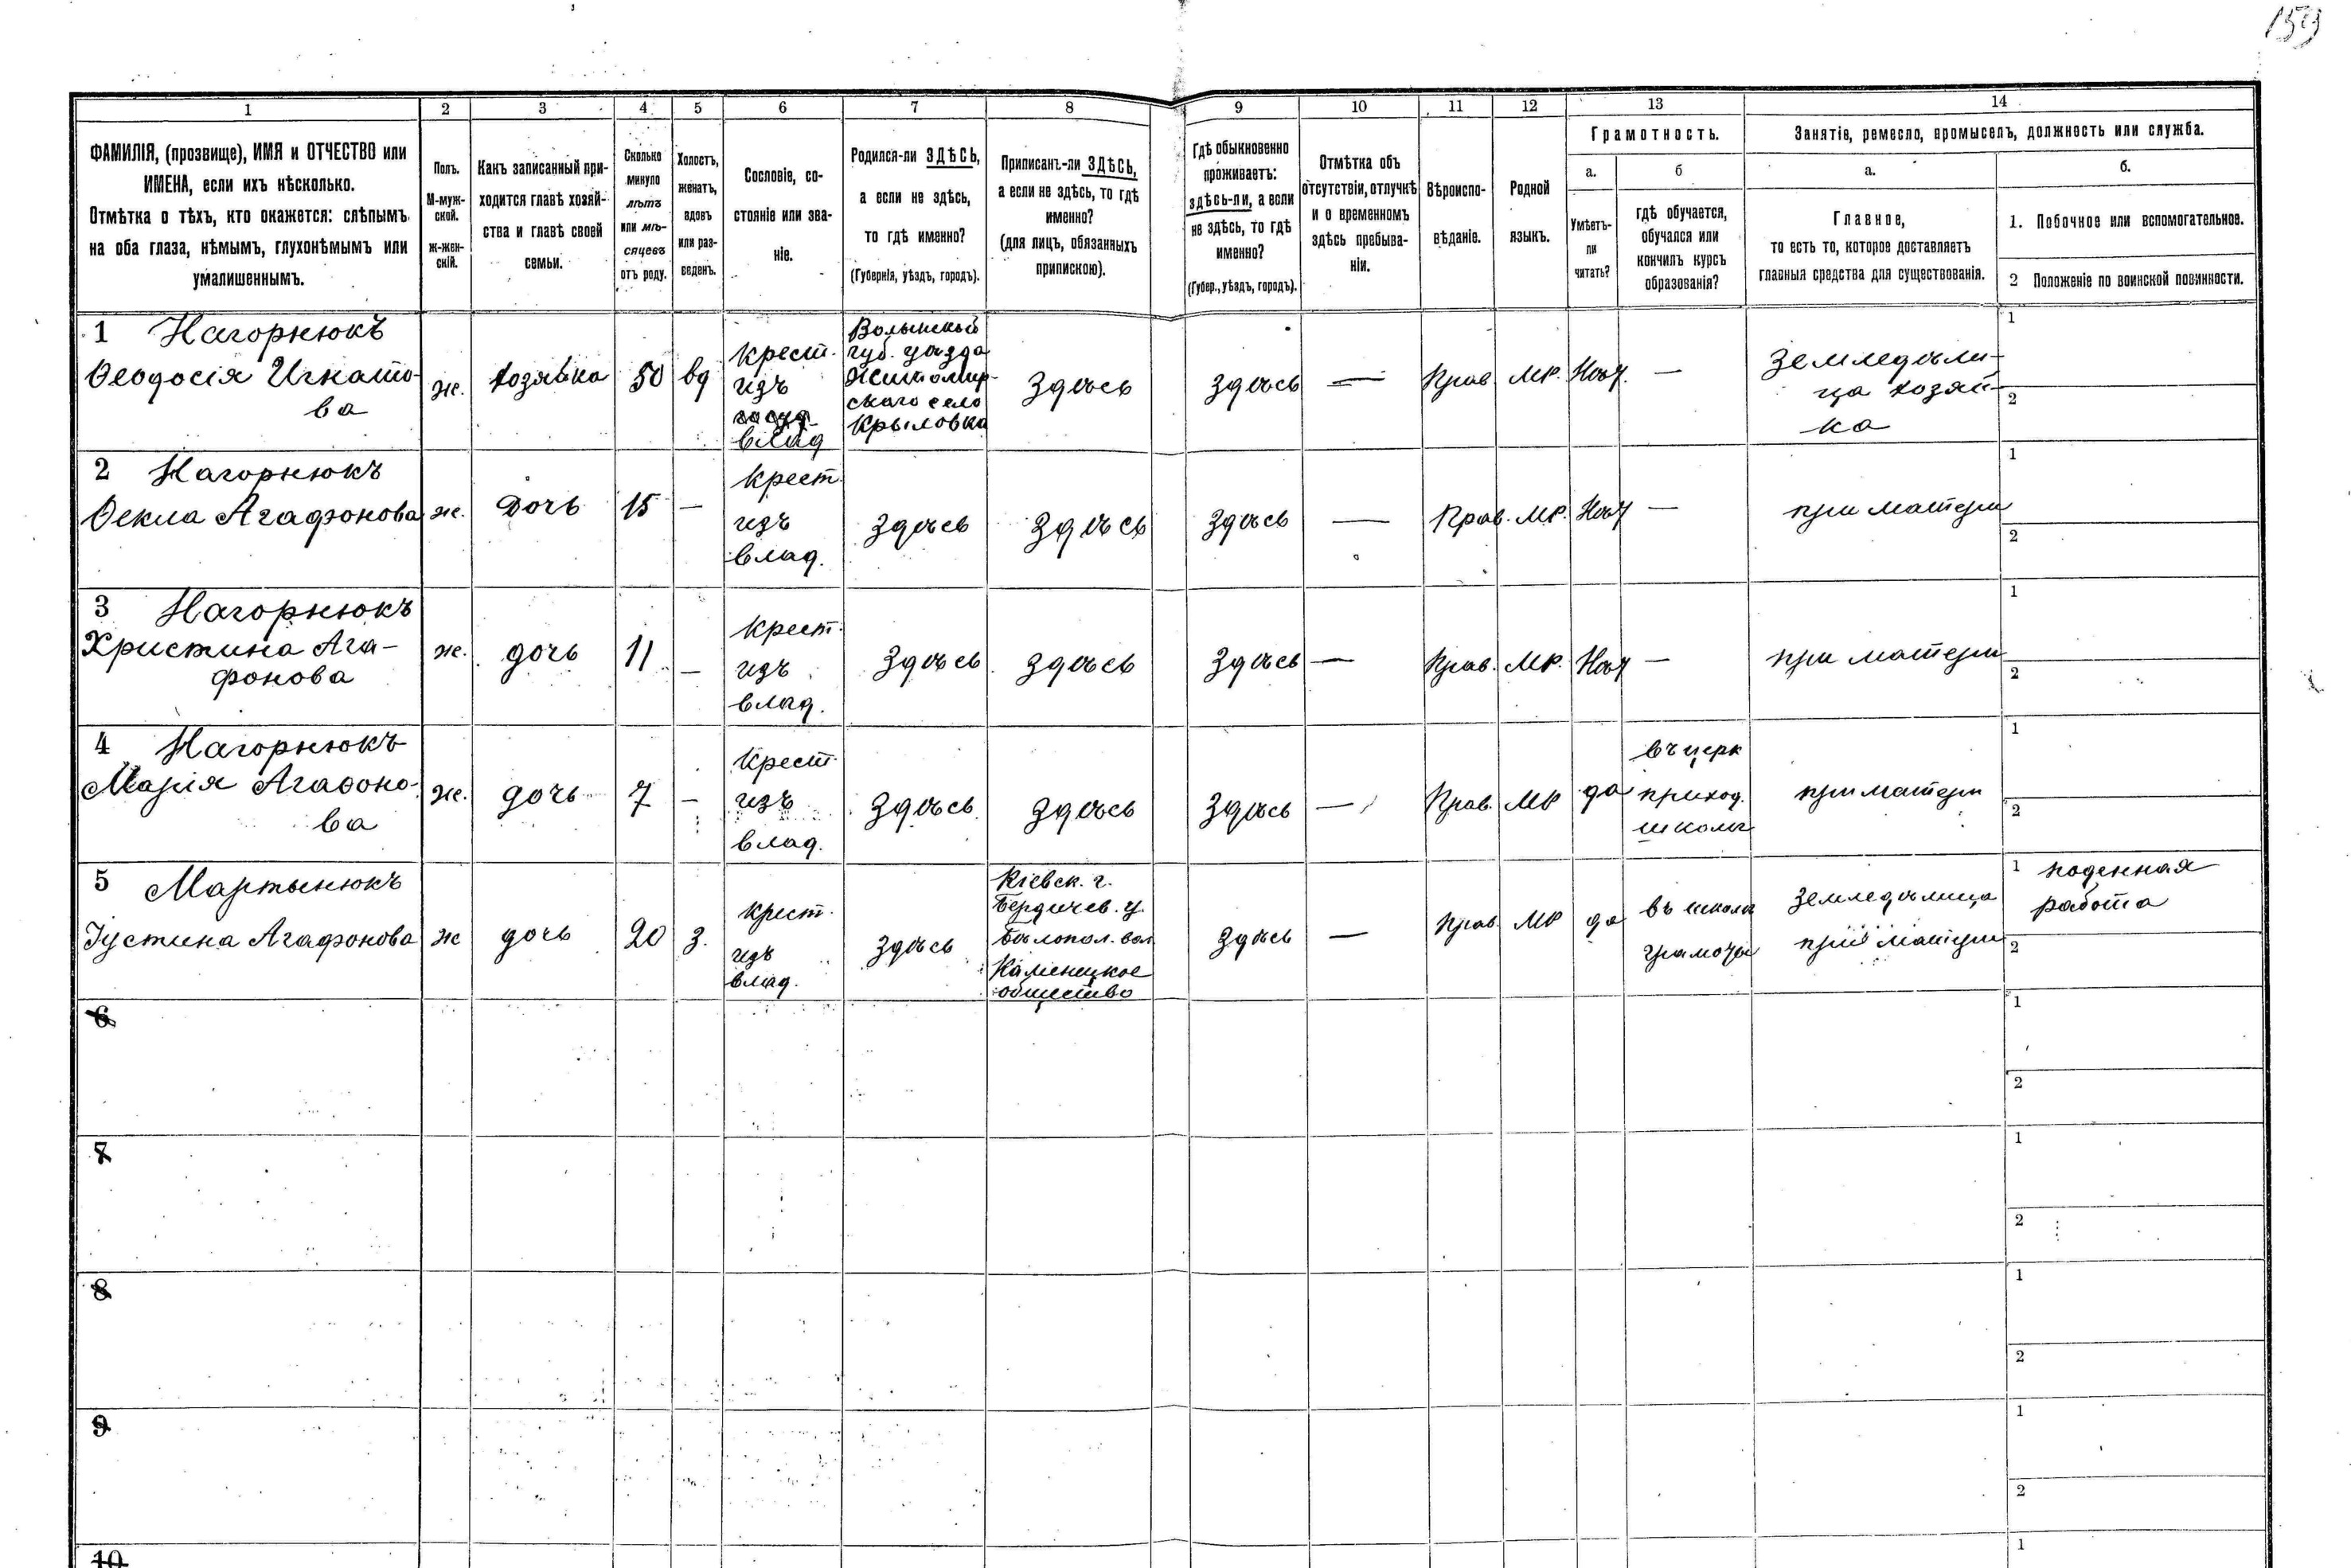 159
1 2 3 4 5 6 7 8 9 10 11 12 13 14
ФАМИЛІЯ, (прозвище), ИМЯ и ОТЧЕСТВО или
ИМЕНА, если ихъ нѣсколько.
Отмѣтка о тѣхъ, кто окажется: слѣпымъ
на оба глаза, нѣмымъ, глухонѣмымъ или
умалишеннымъ.
Полъ.
М-муж-
ской.
ж-жен-
скій.
Какъ записанный при-
ходится главѣ хозяй-
ства и главѣ своей
семьи.
Сколько
минуло
лѣтъ
или мѣ-
сяцевъ
отъ роду.
Холостъ,
женатъ,
вдовъ
или раз-
веденъ.
Сословіе, со-
стояніе или зва-
ніе.
Родился-ли ЗДѢСЬ,
а если не здѣсь,
то гдѣ именно?
(Губернія, уѣздъ, городъ).
Приписанъ-ли ЗДѢСЬ,
а если не здѣсь, то гдѣ
именно?
(для лицъ, обязанныхъ
припискою).
Гдѣ обыкновенно
проживаетъ:
здѣсь-ли, а если
не здѣсь, то гдѣ
именно?
(Губер., уѣздъ, городъ).
Отмѣтка объ
отсутствіи, отлучкѣ
и о временномъ
здѣсь пребыва-
ніи.
Вѣроиспо-
вѣданіе.
Родной
языкъ.
Грамотность.
а.
Умѣетъ-
ли
читать?
б
гдѣ обучается,
обучался или
кончилъ курсъ
образованія?
Занятіе, ремесло, промыселъ, должность или служба.
а.
Главное,
то есть то, которое доставляетъ
главныя средства для существованія.
б.
1. Побочное или вспомогательное.
2 Положеніе по воинской повинности.
1 Нагорнюкъ
Ѳеодосія Игнато-
ва
ж.
хозяйка
50
вд
крест.
изъ
влад
Волынской
губ. уѣзда
Житомир-
скаго село
Крыловка
Здѣсь
Здѣсь
—
Прав.
МР.
Нѣт
—
Земледѣли-
ца хозяй-
ка
1
2
2 Нагорнюкъ
Ѳекла Агафонова
ж.
Дочь
15
—
Крест.
изъ
влад.
Здѣсь
Здѣсь
Здѣсь
—
Прав.
МР.
Нѣт
—
при матери
1
2
3 Нагорнюкъ
Христина Ага-
фонова
ж.
дочь
11
—
Крест.
изъ
влад.
Здѣсь
Здѣсь
Здѣсь
—
Прав.
МР.
Нѣт
—
при матери
1
2
4 Нагорнюкъ
Марія Агаѳоно-
ва
ж.
дочь
7
—
Крест.
изъ
влад.
Здѣсь
Здѣсь
Здѣсь
—
Прав.
МР
да
въ церк
приход.
школѣ
при матери
1
2
5 Мартынюкъ
Іустина Агафонова
ж
дочь
20
з.
крест.
изъ
влад.
Здѣсь
Кіевск. г.
Бердичев. у.
Бѣлопол. вол
Каменецкое
общество
Здѣсь
—
Прав.
МР
да
въ школѣ
грамоты
Земледѣлица
при матери
1 поденная
работа
2
6
1
2
7
1
2
8
1
2
9
1
2
10
1